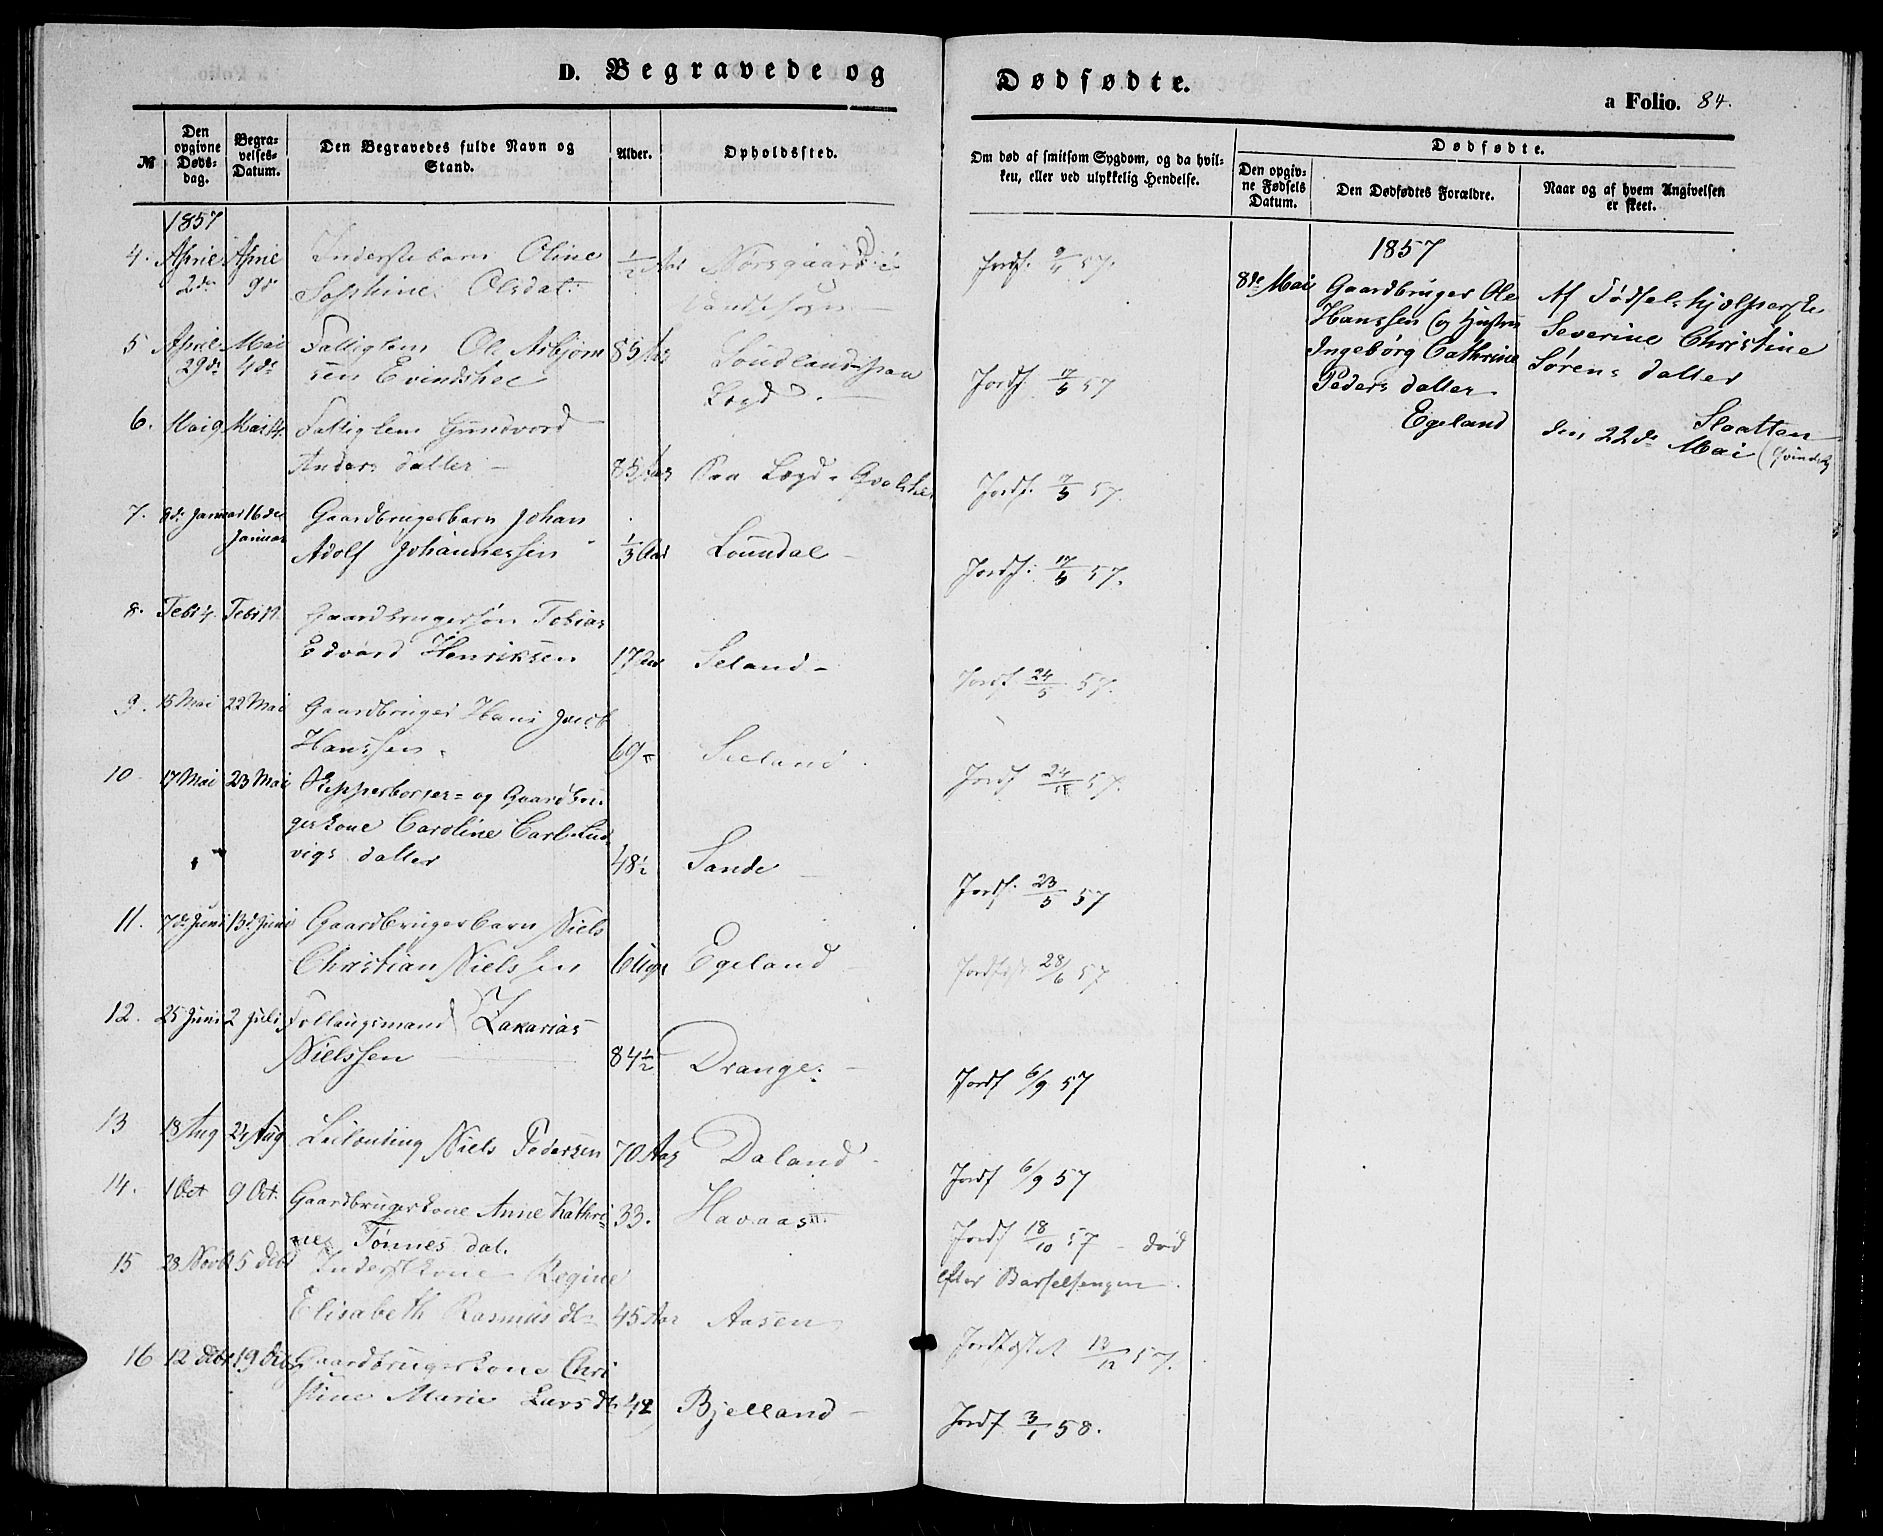 D. Begravede og
Dødfødte.
a Folio. 84.
№
Den opgivne Døds-dag.
Begra-velses-Datum.
Den Begravedes fulde Navn og Stand.
Alder.
Opholdssted.
Om død af smitsom Sygdom, og da hvil-
ken, eller ved ulykkelig Hendelse.
Dødfødte.
Den opgiv-ne Fødsels Datum.
Den Dødfødtes Forældre.
Naar og af hvem Angivelsen er skeet.
1857
4. April 2de April 9de Inderstebarn Oline ½ Aar Norsgaard i
Josphine Olsdat.
Jordf. 9/4 57.
5 April 29de Mai 4de Fattiglem Ole Asbjørn 85 Aar
sen
Lægd.
Jordf 17/5 57
6. Mai 9 Mai 14. Fattiglem Gundvord
Anders datter – 85 Aar Paa Lægd
Jordf. 17/5 57.
7. 8de Januar 16de Januar Gaardbrugerbarn Johan
Adolf Johannessen ⅓ Aar Loundal
Jordf: 17/5 57.
8. Febr 4. Febr Gaardbrugersøn Tobias
Edvard Henriksen 17 Aar Seland –
Jordf 24/5 57.
9. 15 Mai 22 Mai Gaardbruger Hans Jacob
Hanssen. 69 – Seeland
Jordf 24/5 57.
10 17 Mai 23 Mai Skipperborger= og Gaardbru
gerkone Caroline Carl Lud
vigs datter 48½ Sande
Jordf. 23/5 57
11. 7de Juni 13de Juni Gaardbrugerbarn Niels
Christian Nielssen 6 Uger Egeland
Jordfæst 28/6 57
12. 25 Juni 2 Juli Follaugsmand Zakarias
Nielssen 84½ Drange.
Jordf 6/9 57
13 18 Aug 24 Aug Leilænding Niels Pedersen 70 Aar Daland
Jordf 6/9 57
14. 1 Oct 9 Oct. Gaardbrugerkone Anne Kathri 33. Havaas
ne Tønnes dat.
Jordf 18/10 57 – død
efter Barselsengen.
15 28 Novbr 5 Debr Inderstkone Regine
Elisabeth Rasmus dt 45 Aar Aasen
Jordfæstet 12/12 57.
16 12 Debr 19 Gaardbrugerkone Chri
stine Marie Lars dt. 42 Bjelland –
Jordf 3/1 58.
1857
8de Mai Gaardbruger Ole
Hanssen og Hustru
Ingeborg Cathrine
Peders datter
Egeland
Af Fødselshjælperske
Severine Christine
Sørens datter
Slaatten
den 22de Mai